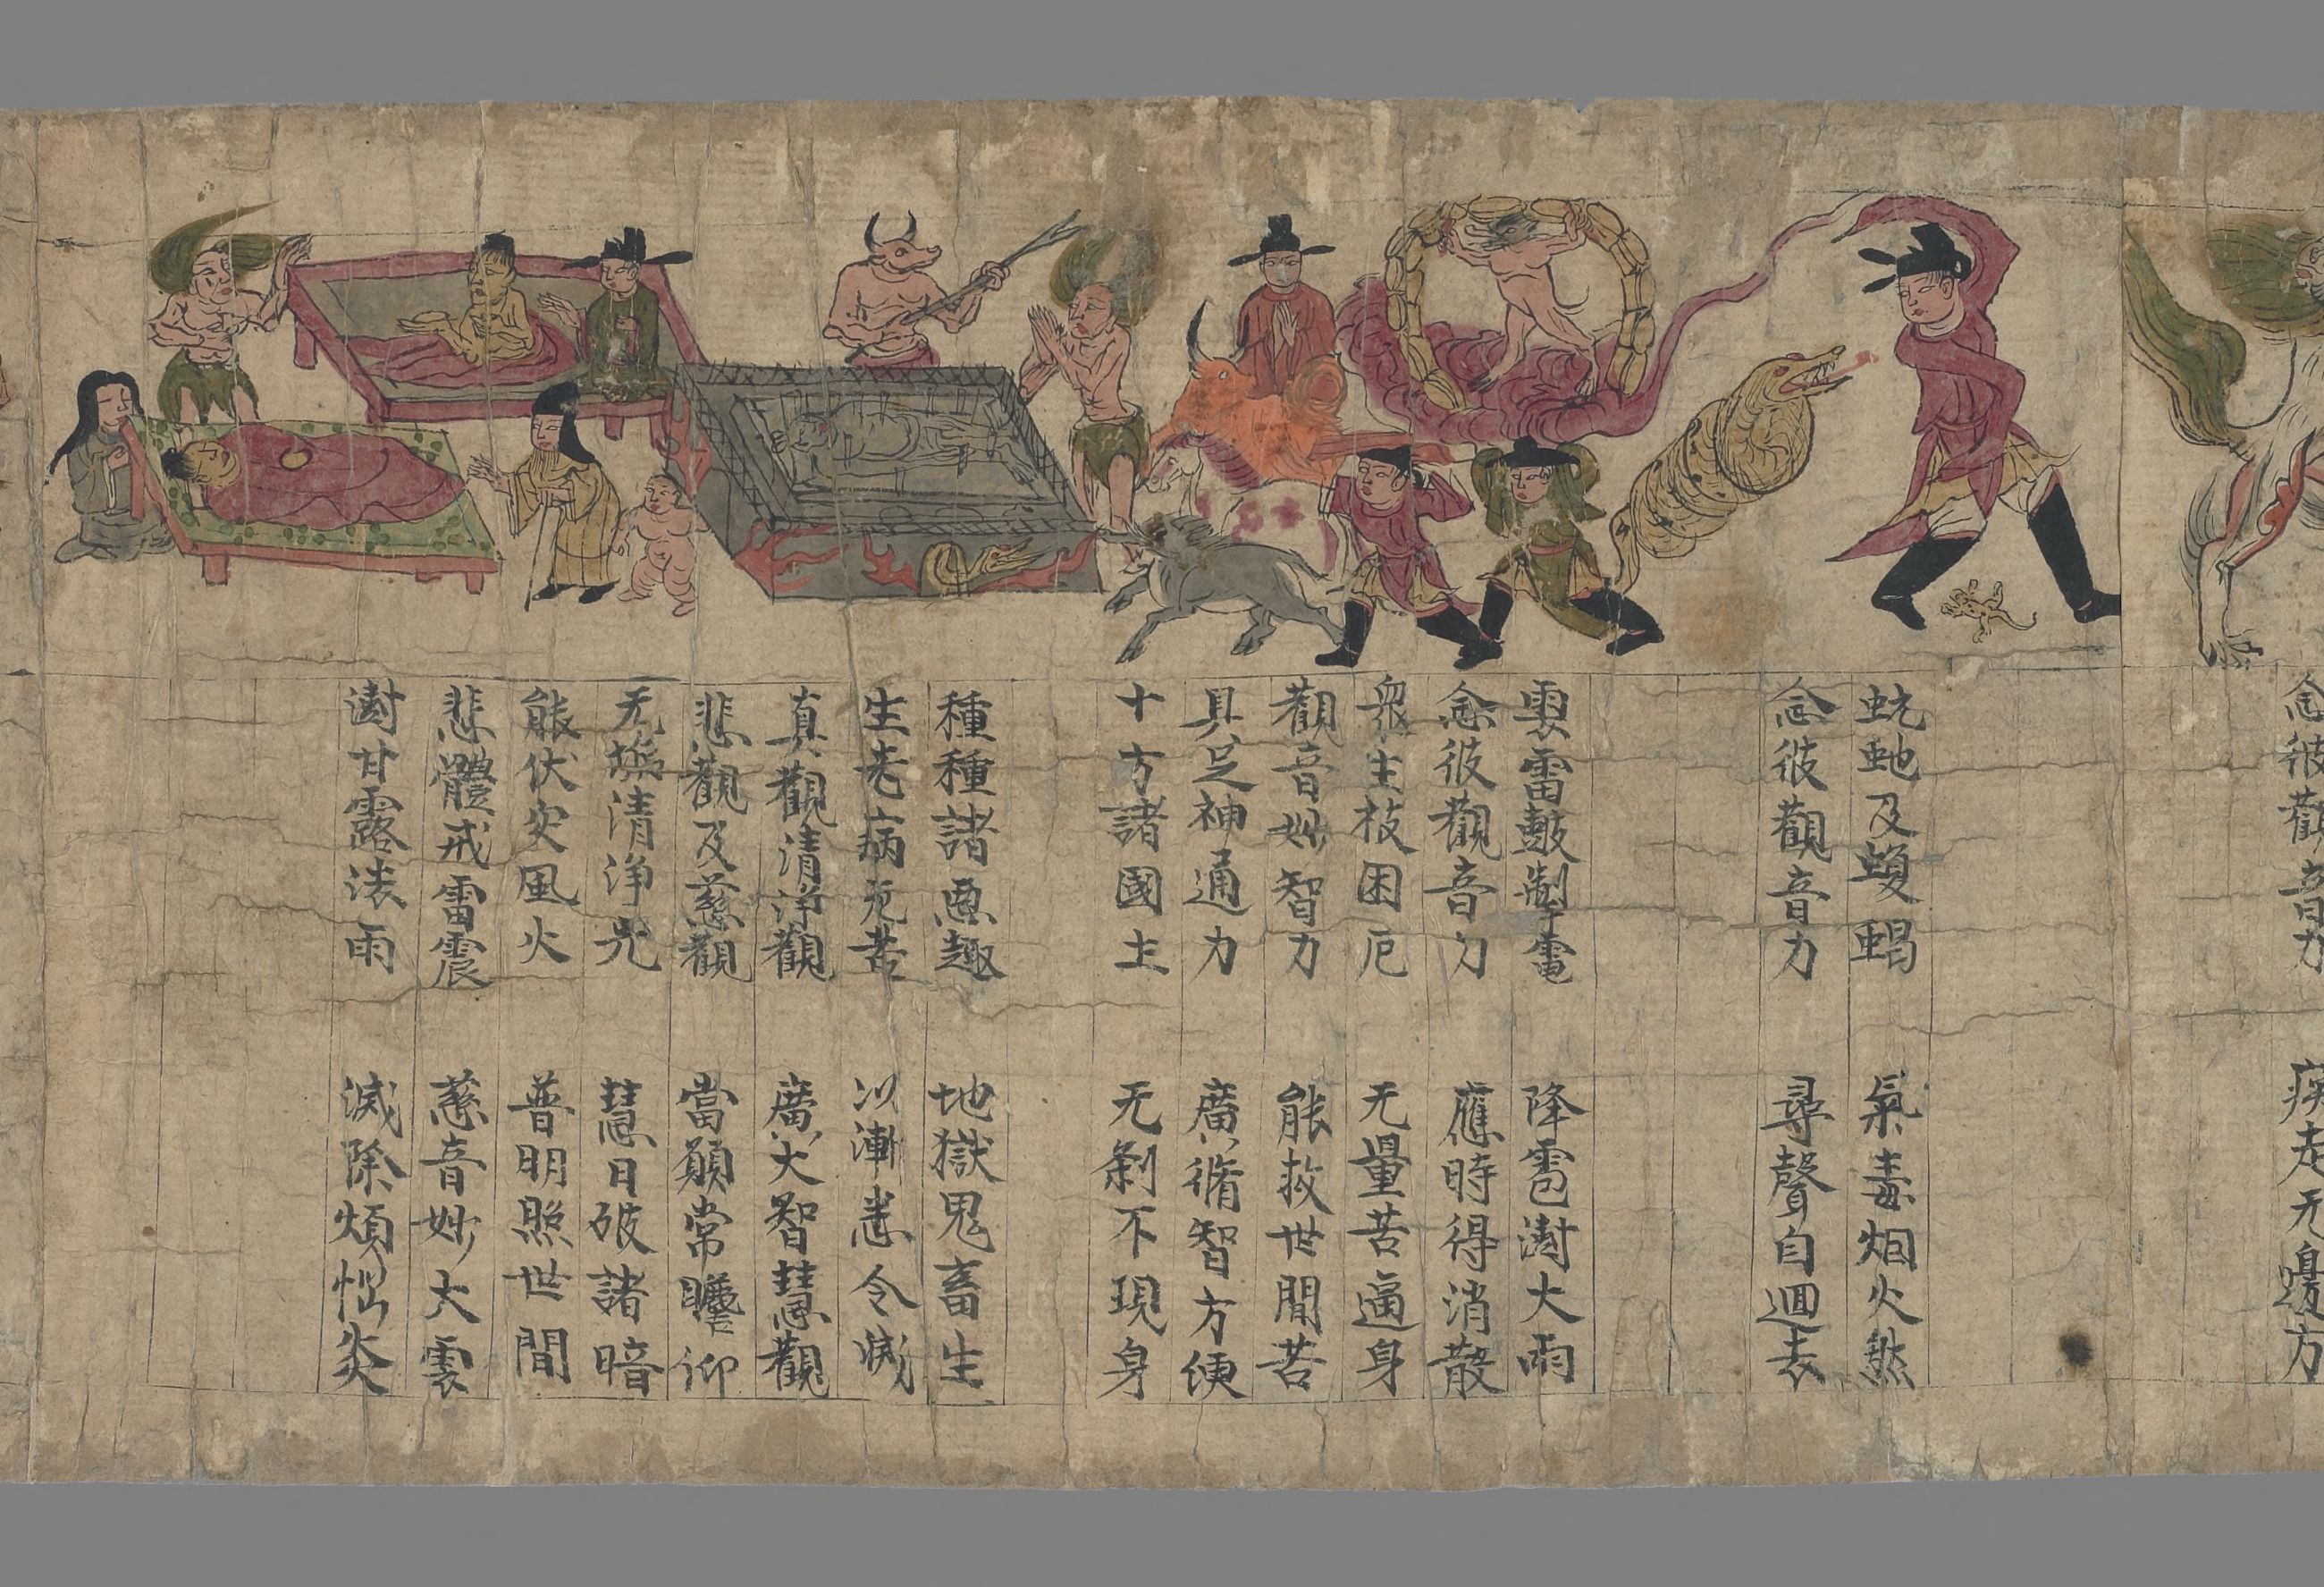 念彼觀音力 疾走无邊方
蚖虵及蝮蝎 氣毒烟火燃
念彼觀音力 尋聲自迴去
雲雷鼓掣電 降雹澍大雨
念彼觀音力 應時得消散
衆生被困厄 无量苦逼身
觀音妙智力 能救世間苦
具足神通力 廣脩智方便
十方諸國土 无刹不現身
種種諸惡趣 地獄鬼畜生
生老病死苦 以漸悉令滅
真觀清淨觀 廣大智慧觀
悲觀及慈觀 當願常瞻仰
无垢清淨光 慧日破諸暗
能伏灾風火 普明照世間
悲體戒雷震 慈音妙大雲
澍甘露法雨 滅除煩惱炎